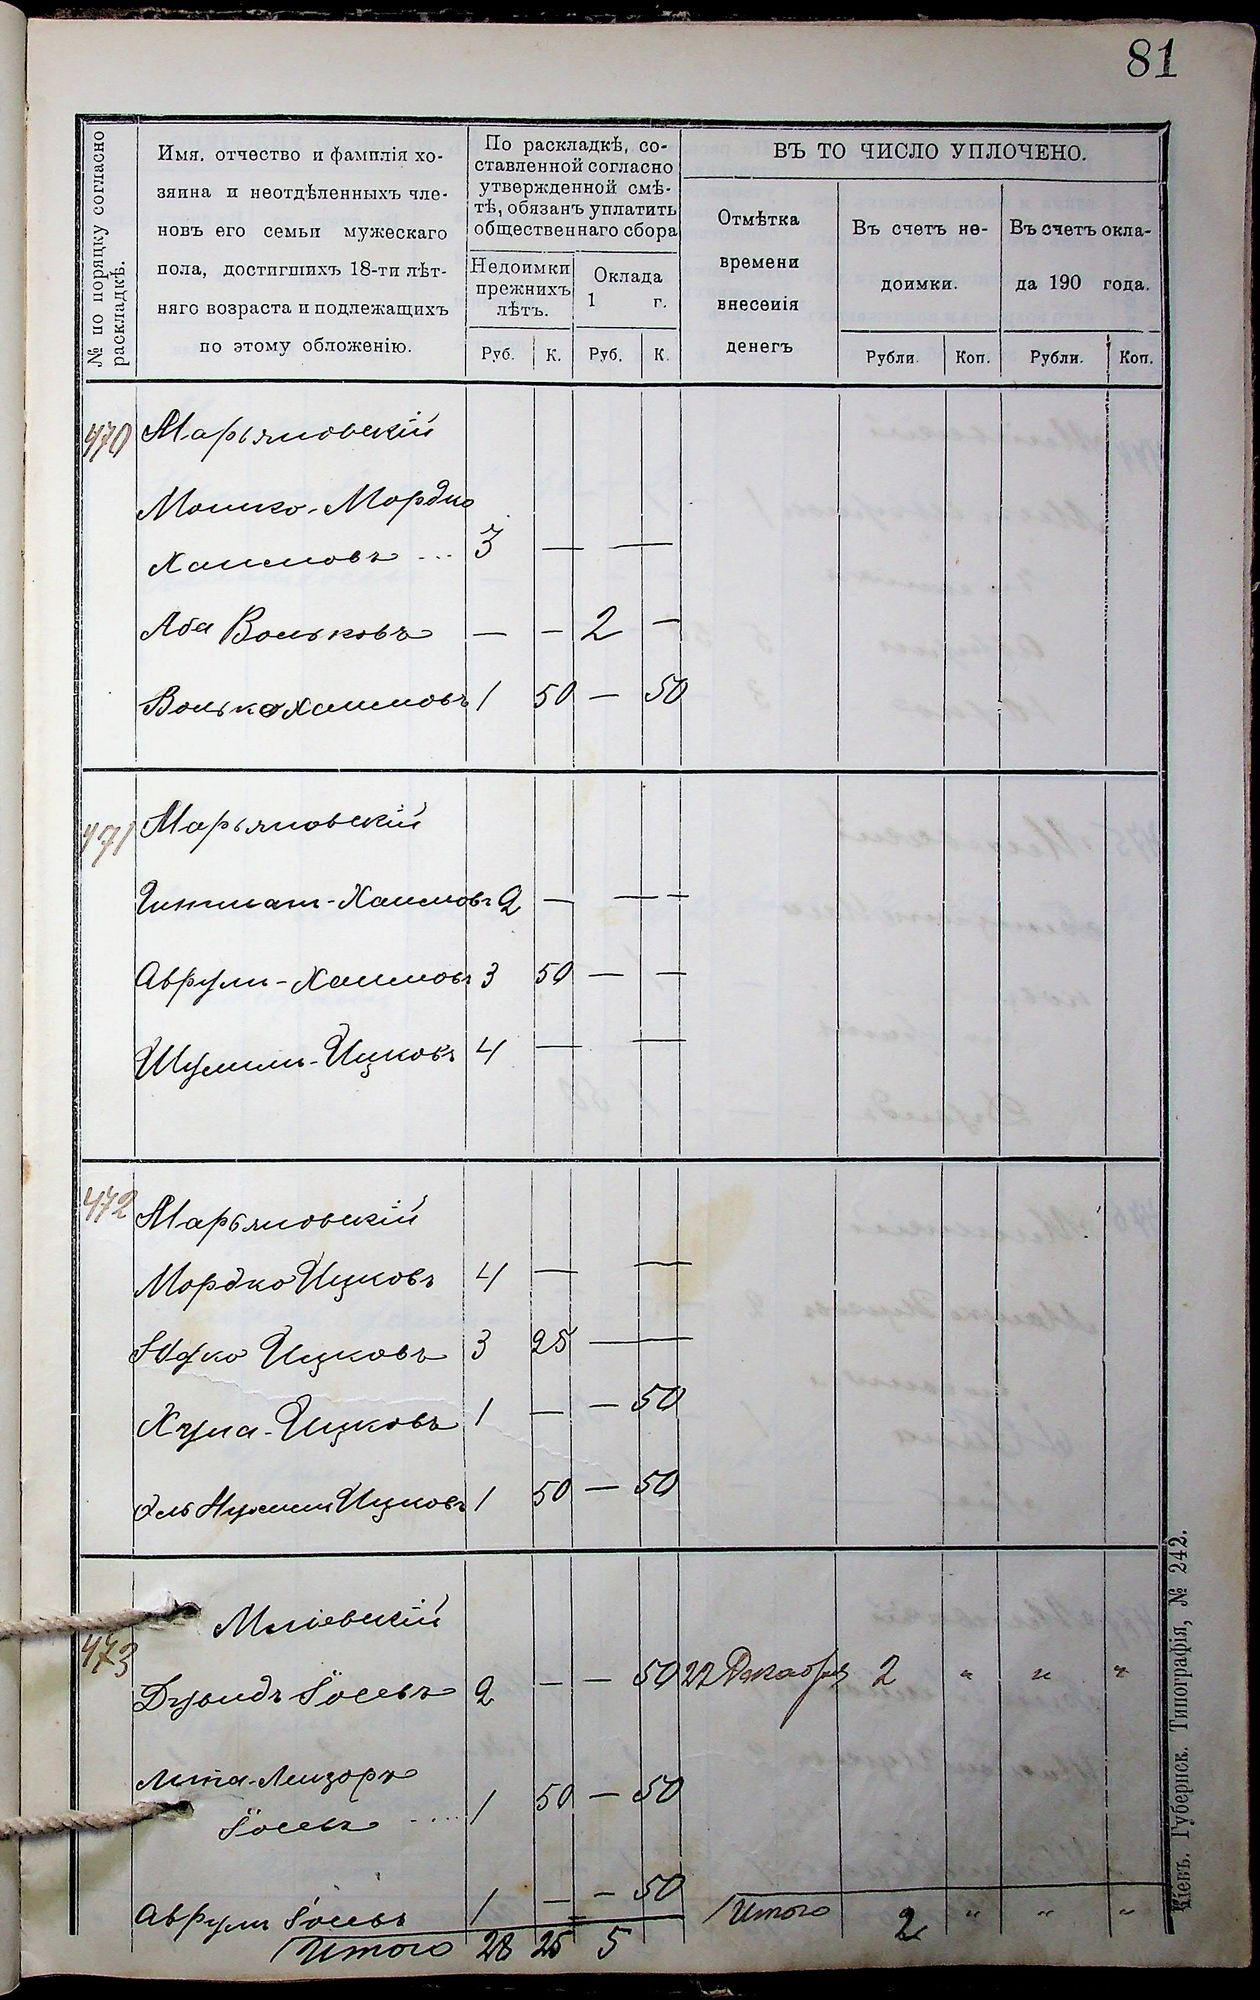 81
№ по порядку согласно раскладкѣ.
Имя. отчество и фамилія хо-
зяина и неотдѣленныхъ чле-
новъ его семьи мужескаго
пола, достигшихъ 18-ти лѣт-
няго возраста и подлежащихъ
по этому обложенію.
По раскладкѣ, со-
ставленной согласно
утвержденной смѣ-
тѣ, обязанъ уплатить
общественнаго сбора
Недоимки
прежнихъ
лѣтъ.
Оклада
1 г.
Руб. К. Руб. К.
ВЪ ТО ЧИСЛО УПЛОЧЕНО.
Отмѣтка
времени
внесенія
денегъ
Въ счетъ не-
доимки.
Въ счетъ окла-
да 190 года.
Рубли. Коп. Рубли. Коп.
470 Марьяновскій
Мошко-Мордко
Хаимовъ ... 3 — —
Аба Вольковъ — — 2 —
Волько Хаимовъ 1 50 — 50
471 Марьяновскій
Хаимовъ 2 — — —
Аврумъ-Хаимовъ 3 50 — —
Шулимъ-Ицковъ 4 — —
472 Марьяновскій
Мордко Ицковъ 4 — —
Ицковъ 3 25 — —
Ицковъ 1 — — 50
Ицковъ 1 50 — 50
473 Мліевскій
Дувидъ Іосевъ 2 — — 50 22 Декабря 2 " " "
Лейзоръ
Іосевъ .... 1 50 — 50
Аврумъ Іосевъ 1 — — 50
Итого 28 25 5
Итого 2 " " "
Кіевъ. Губернск. Типографія, № 242.